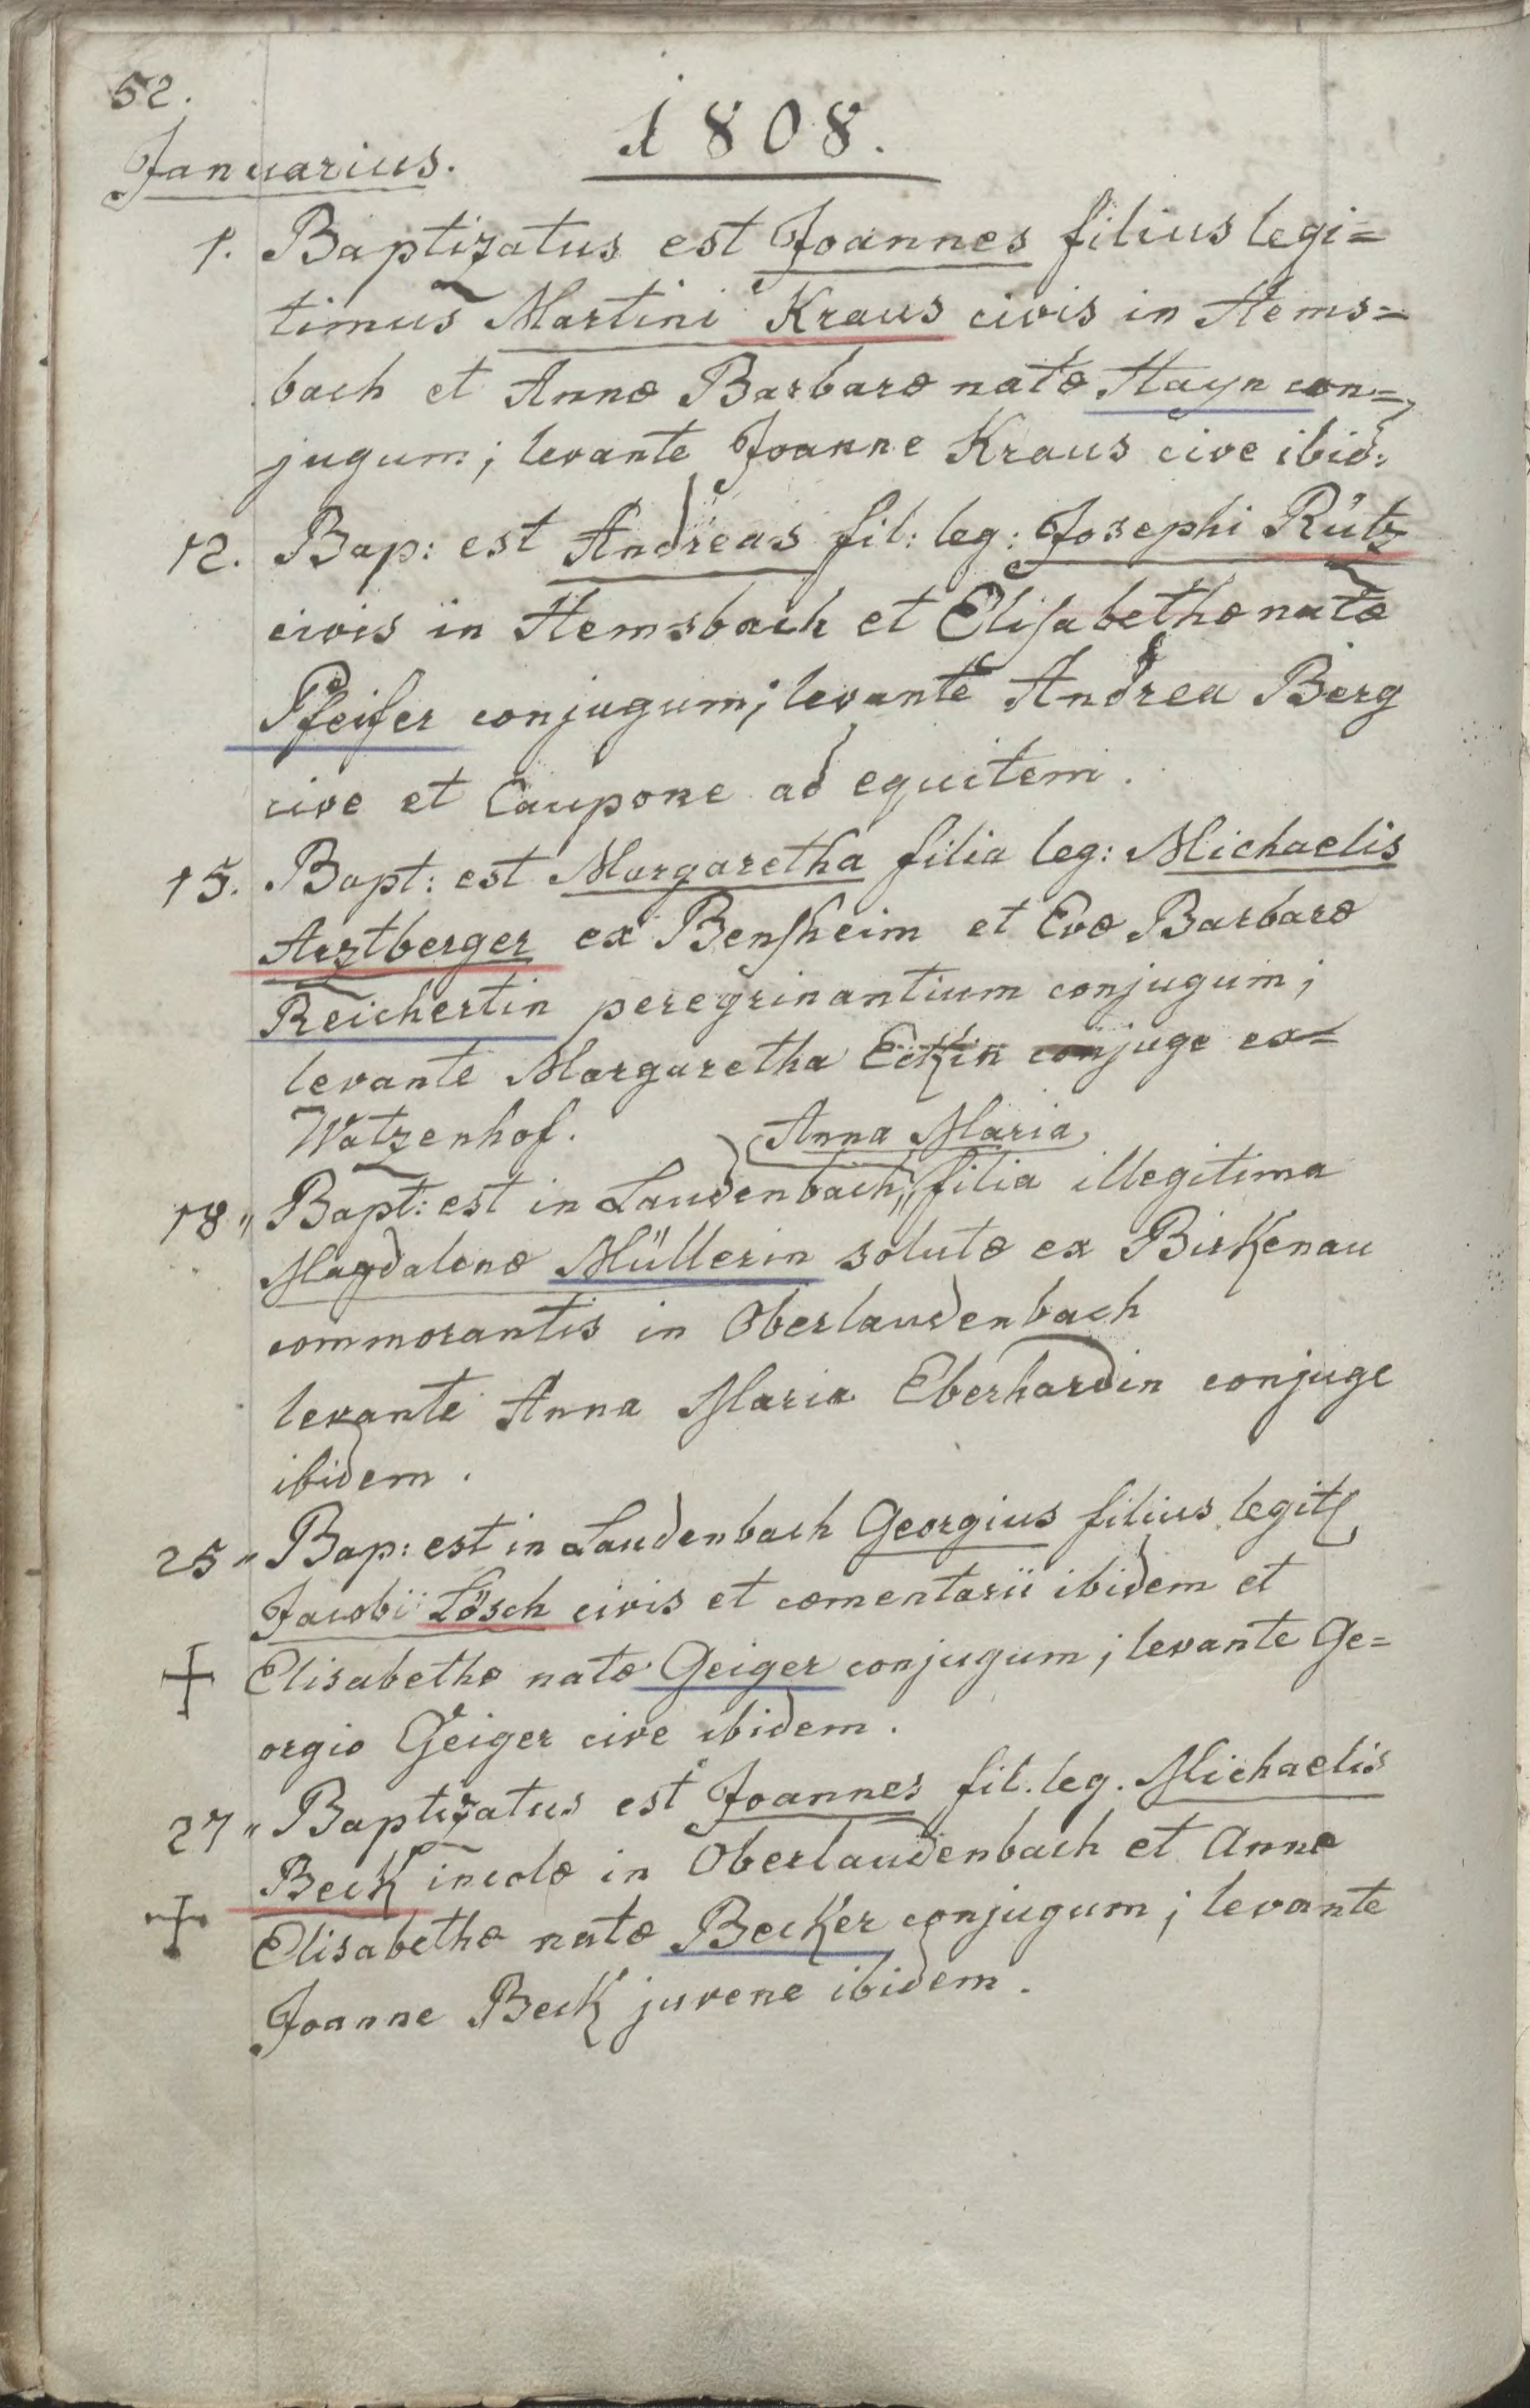 52.
1808.
Januarius.
1. Baptizatus est Joannes filius legi=
timus Martini Kraus civis in Hems=
bach et Annæ Barbaræ natæ Hayn con=
jugum; levante Joanne Kraus cive ibid:
12. Bap: est Andreas fil: leg: Josephi Rütz
civis in Hemsbach et Elisabethæ natæ
Pfeifer conjugum; levante Andrea Berg
cive et Caupone ad equitem.
15. Bapt: est Margaretha filia leg: Michaelis
Arztberger ex Bensheim et Evæ Barbaræ
Reichertin peregrinantium conjugum;
levante Margaretha Eckin conjuge ex=
Watzenhof.
Anna Maria
18" Bapt: est in Laudenbach, filia illegitima
Magdalenæ Müllerin solutæ ex Birkenau
commorantis in Oberlaudenbach
levante Anna Maria Eberhardin conjuge
ibidem.
25" Bap: est in Laudenbach Georgius filius legit
Jacobi Lösch civis et cæmentarii ibidem et
+ Elisabethæ natæ Geiger conjugum; levante Ge=
orgio Geiger cive ibidem.
27" Baptizatus est Joannes fil. leg. Michaelis
Beck incolæ in Oberlaudenbach et Annæ
+ Elisabethæ natæ Becker conjugum; levante
Joanne Beck juvene ibidem.